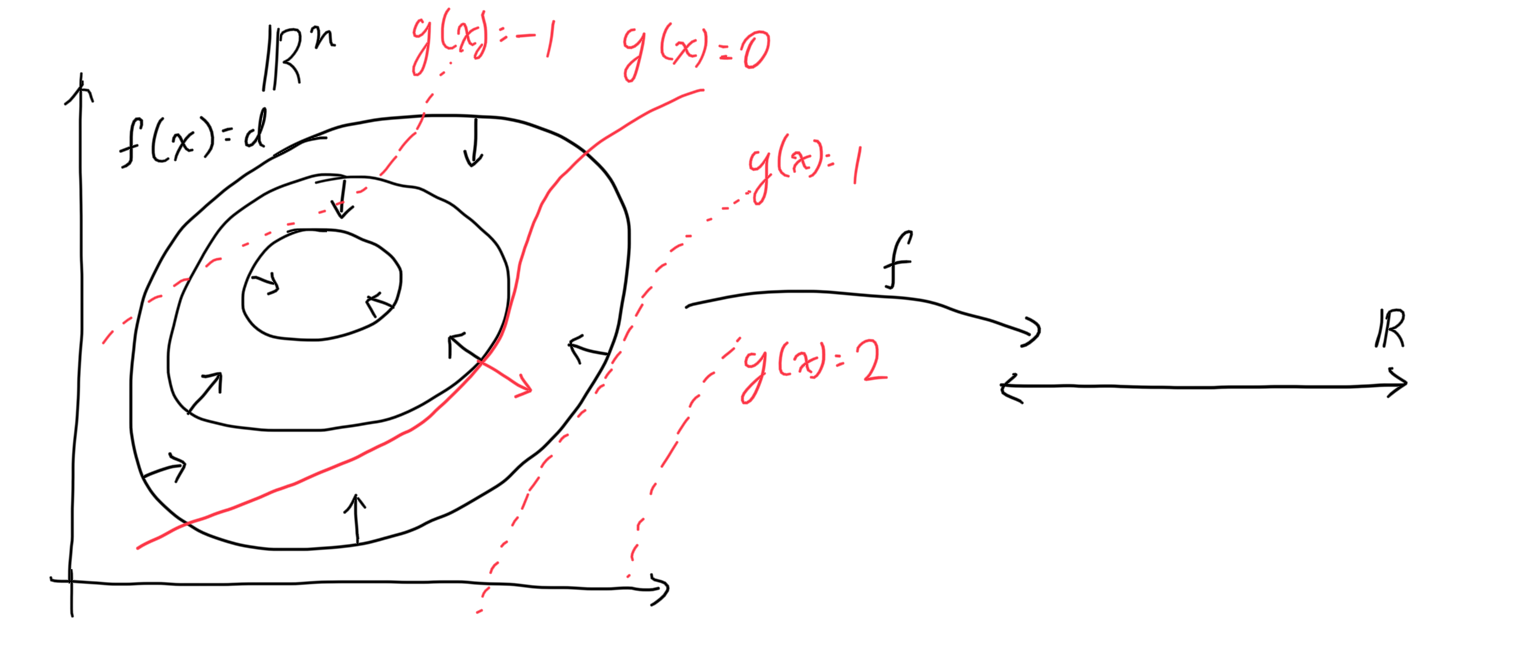 ℝⁿ
g(x)=-1
g(x)=0
f(x)=d
g(x)=1
f
ℝ
g(x)=2